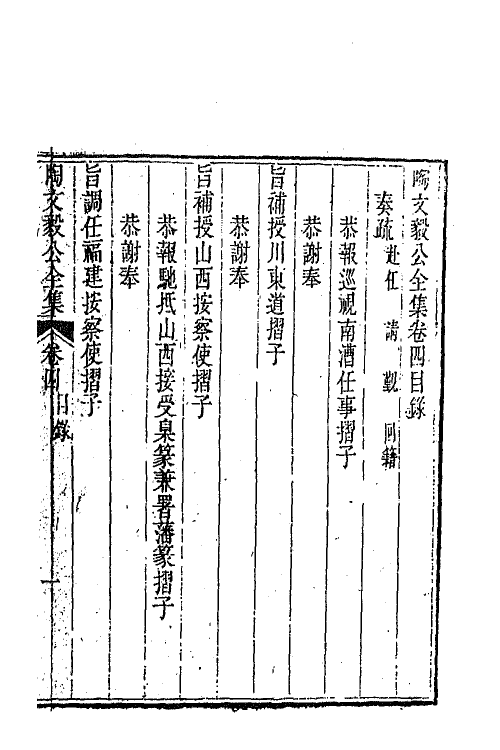 陶文毅公全集卷四目錄
奏疏 赴任 請覲 回籍
恭報巡視南漕任事摺子
恭謝奉
旨補授川東道摺子
恭謝奉
旨補授山西按察使摺子
恭報馳抵山西接受臬篆兼署藩篆摺子
恭謝奉
旨調任福建按察使摺子
陶文毅公全集 卷四 目錄 一